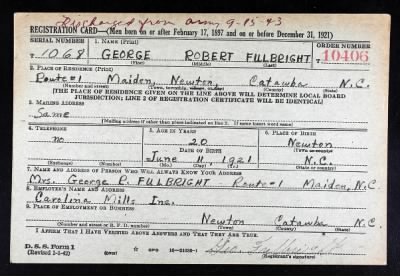 Discharged from army 9-15-43
REGISTRATION CARD—(Men born on or after February 17, 1897 and on or before December 31, 1921)
SERIAL NUMBER 1. NAME (Print) ORDER NUMBER
T 1068 GEORGE ROBERT FULBRIGHT 10406
(First) (Middle) (Last)
2. PLACE OF RESIDENCE (Print)
Route #1 Maiden, Newton, Catawba N.C.
(Number and street) (Town, township, village, or city) (County) (State)
[THE PLACE OF RESIDENCE GIVEN ON THE LINE ABOVE WILL DETERMINE LOCAL BOARD
JURISDICTION; LINE 2 OF REGISTRATION CERTIFICATE WILL BE IDENTICAL]
3. MAILING ADDRESS
Same
[Mailing address if other than place indicated on line 2. If same insert word same]
4. TELEPHONE 5. AGE IN YEARS 6. PLACE OF BIRTH
no 20 Newton
DATE OF BIRTH (Town or county)
June 11, 1921 N.C.
(Exchange) (Number) (Mo.) (Day) (Yr.) (State or country)
7. NAME AND ADDRESS OF PERSON WHO WILL ALWAYS KNOW YOUR ADDRESS
Mrs. George R. FULBRIGHT Route #1 Maiden, N.C.
8. EMPLOYER'S NAME AND ADDRESS
Carolina Mills Inc.
9. PLACE OF EMPLOYMENT OR BUSINESS
Newton Catawba N.C.
(Number and street or R. F. D. number) (Town) (County) (State)
I AFFIRM THAT I HAVE VERIFIED ABOVE ANSWERS AND THAT THEY ARE TRUE.
D. S. S. Form 1
(Revised 1-1-42) GPO 16-21630-1
(Registrant's signature)